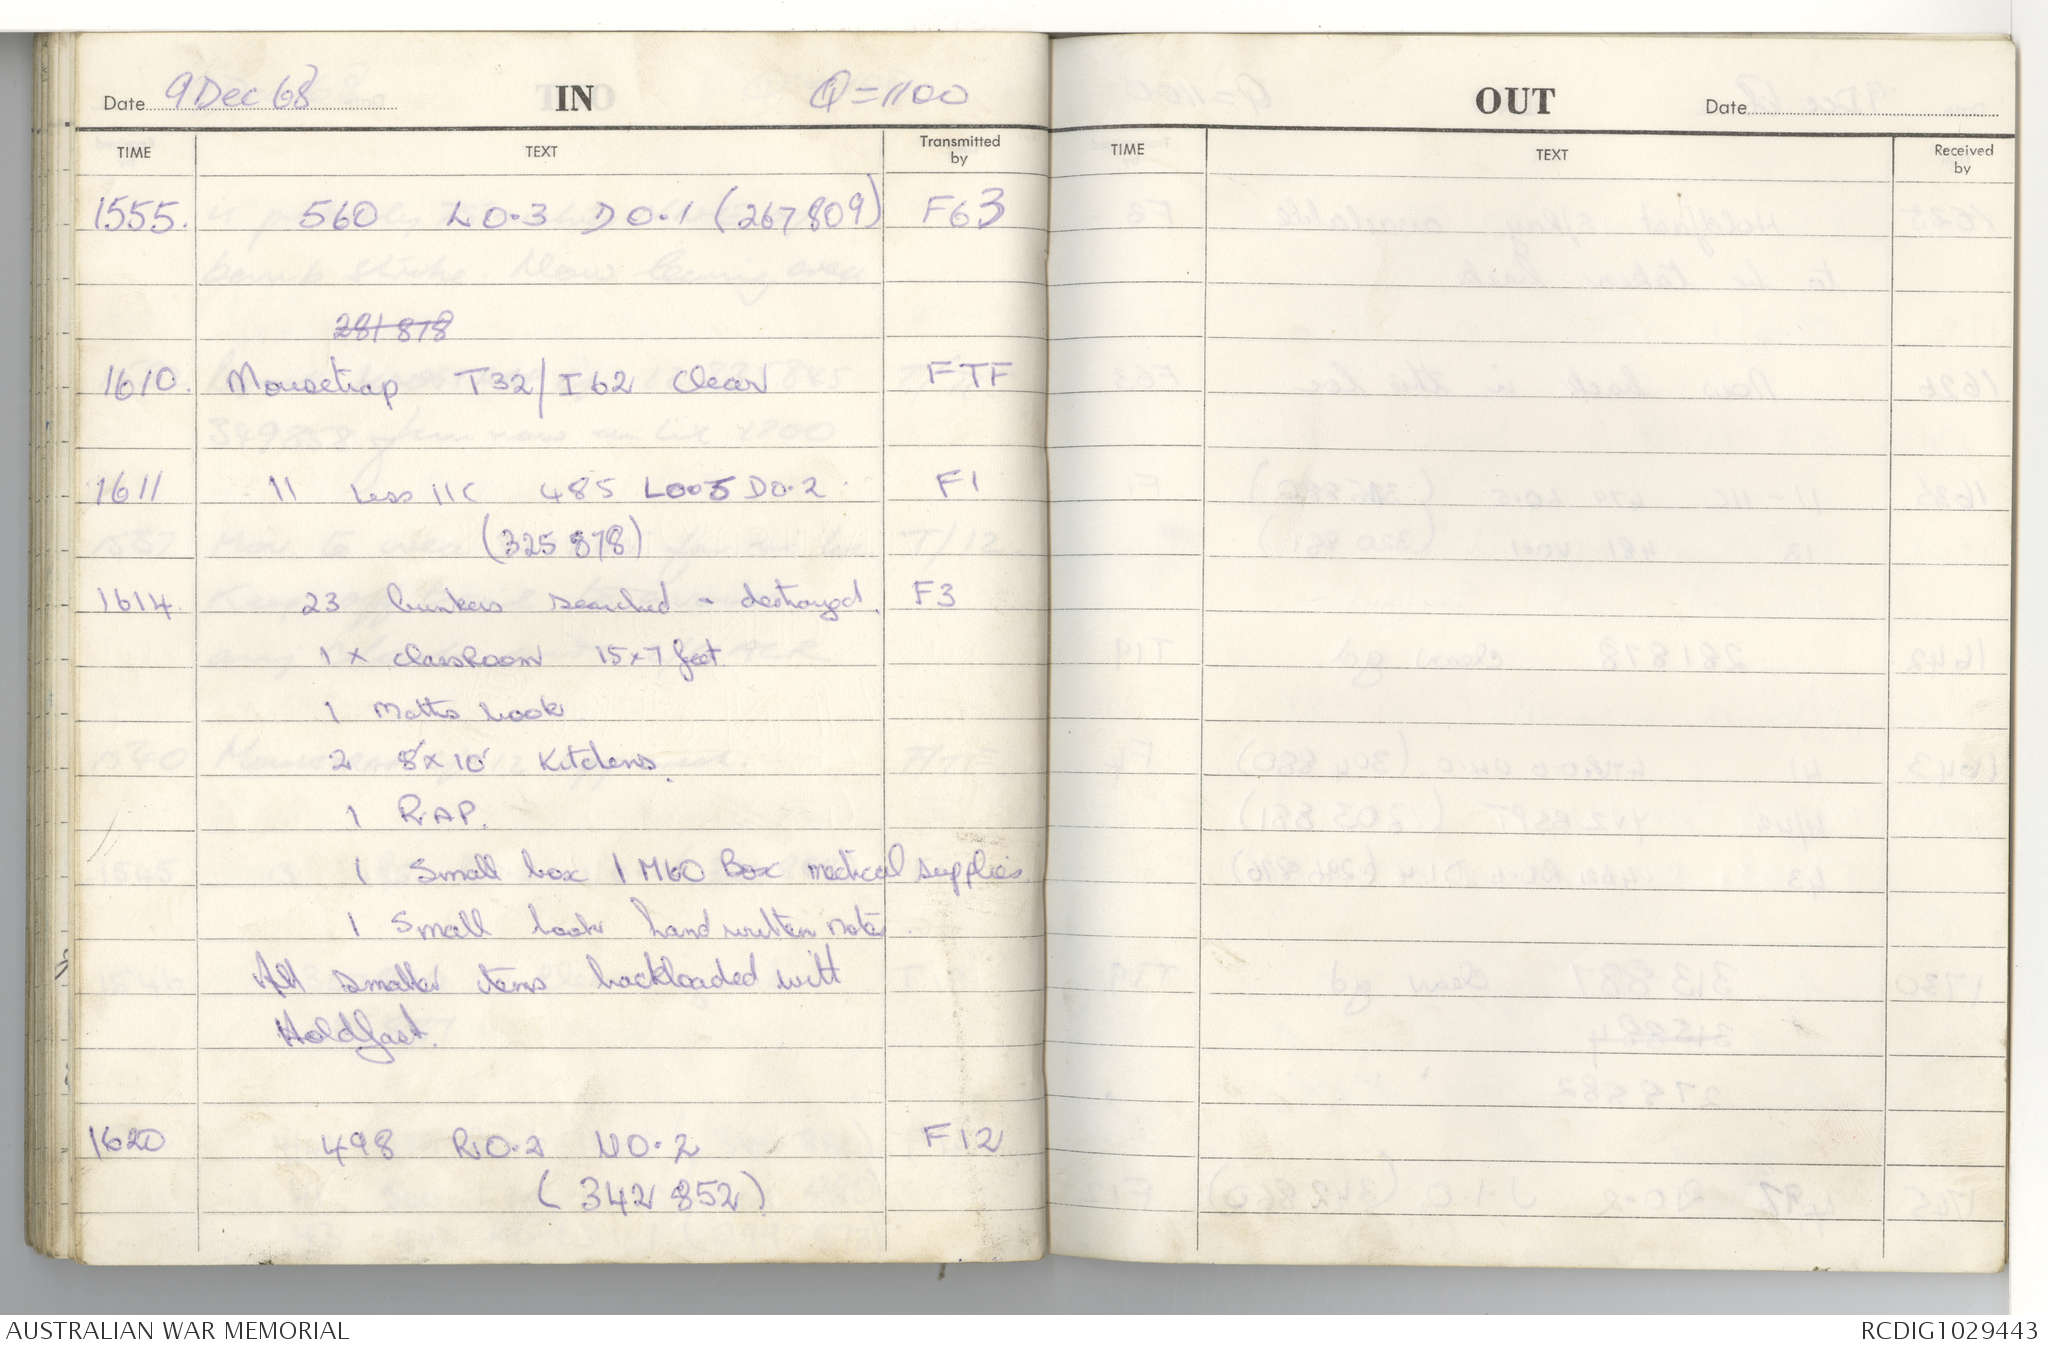 Date 9 Dec 68 IN Q=1100
TIME TEXT Transmitted by
1555. 560 LO.3 DO.1 (267809) F63
281878
1610. Mousetrap T32/I62 Clear FTF
1611 11 Less 11C 485 LO.5 DO.2 F1
(325 878)
1614. 23 bunkers searched - destroyed. F3
1 x classroom 15x7 feet
1 Maths book
2 8'x10' Kitchens.
1 RAP.
1 Small box 1 M60 Box medical supplies
1 Small book hand written notes.
All smaller items backloaded with
Holdfast.
1620 498 RO.2 UO.2 F12
(342 852)
OUT Date
TIME TEXT Received by
AUSTRALIAN WAR MEMORIAL RCDIG1029443